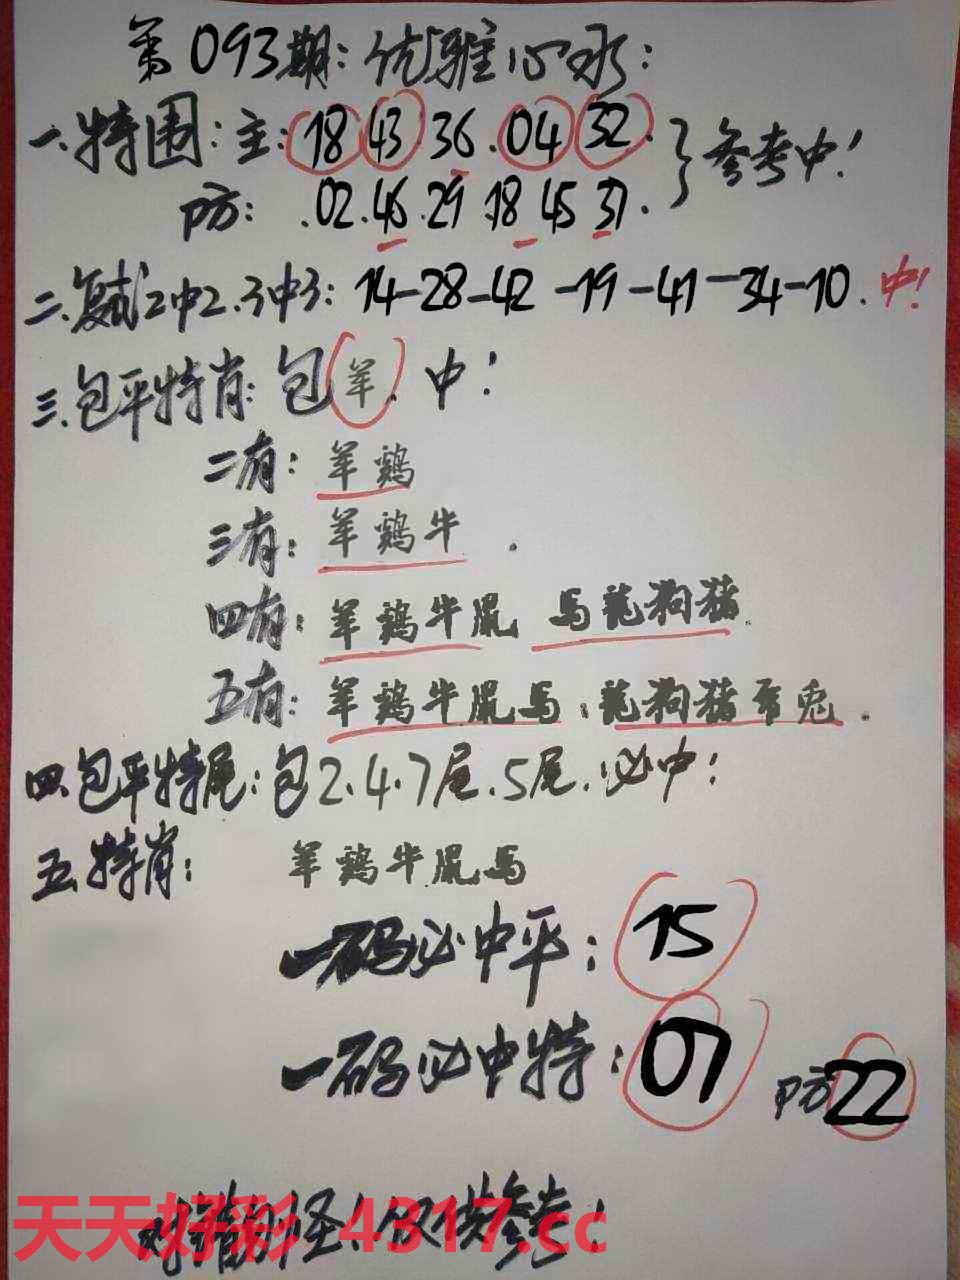 第093期:优雅心水:
一.特围:主:18 43 36.04 32.
防:.02.46.29.18 45 31.
}参考中!
二.复试2中2.3中3:14-28-42-19-41-34-10.中!
三.包平特肖:包羊.中!
二有:羊鸡
三有:羊鸡牛.
四有:羊鸡牛鼠 馬龍狗猪.
五有:羊鸡牛鼠馬:龍狗猪 兎.
四.包平特尾:包2.4.7尾.5尾.必中!
五.特肖: 羊鸡牛鼠馬
一码必中平:15
一码必中特:07 防22
对错勿怪!仅供参考!
天天好彩 4317.cc